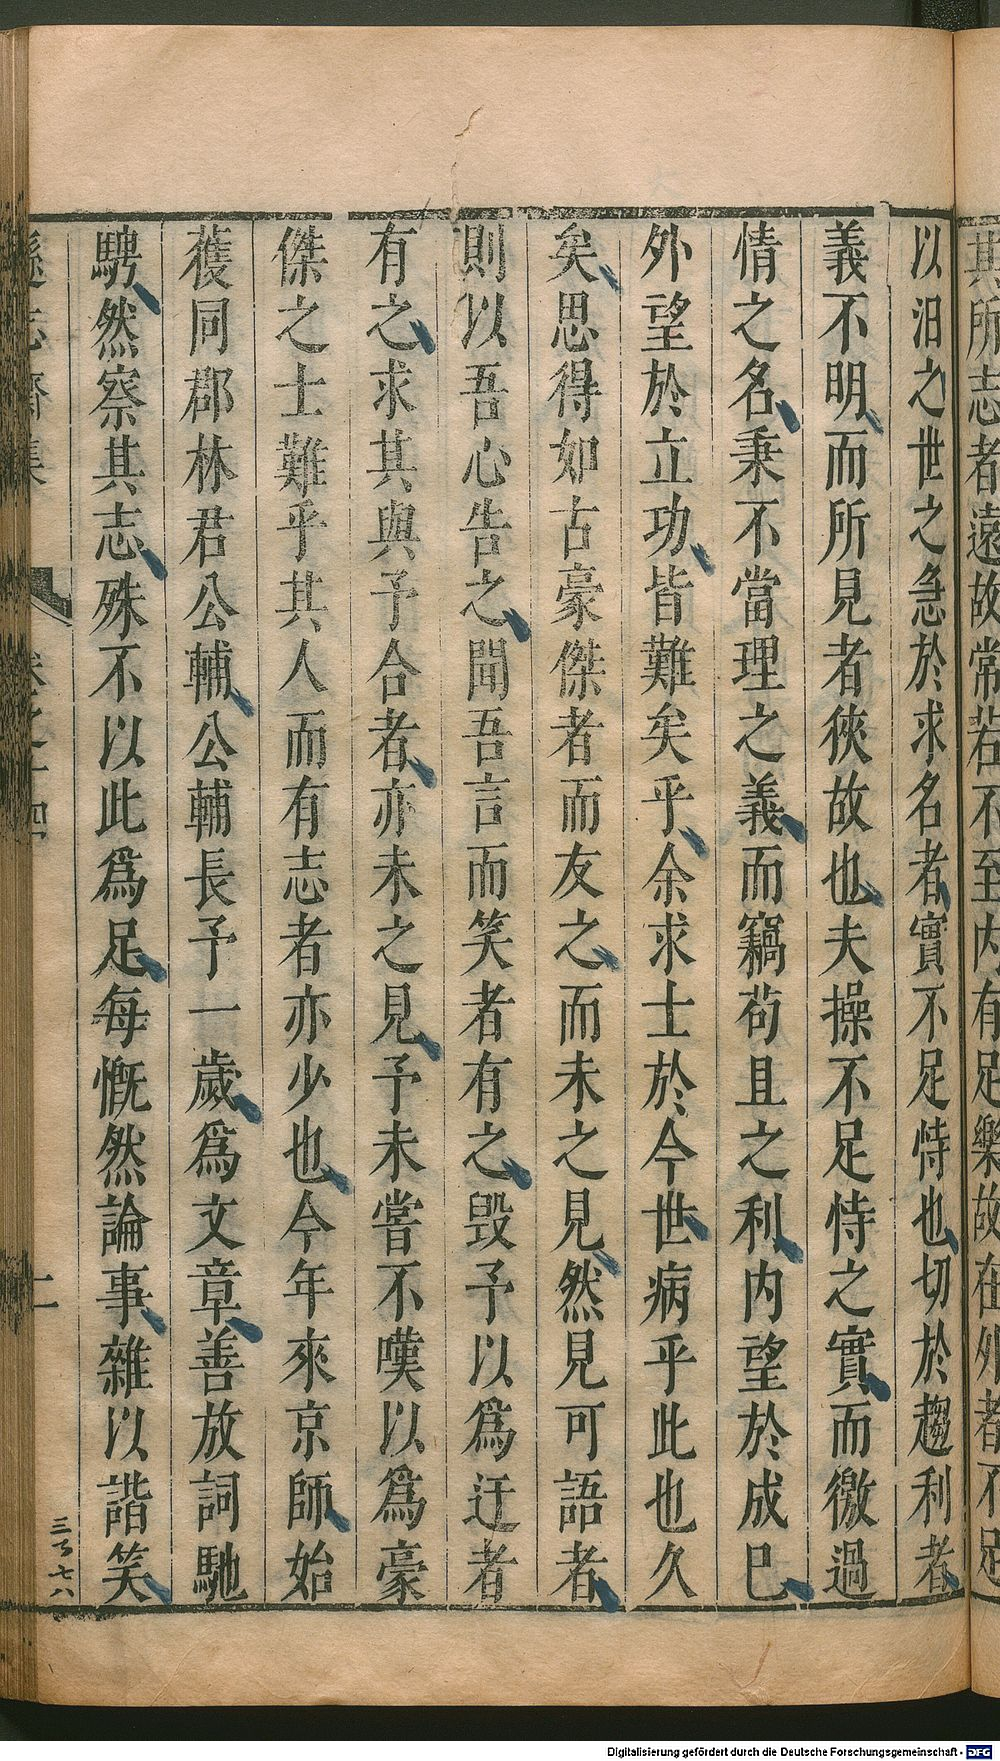 其所志者遠故常若不至内有足樂故在外者不足
以汨之世之急於求名者實不足恃也切於趨利者
義不明而所見者狹故也夫操不足恃之實而徼過
情之名秉不當理之義而竊苟且之利内望於成已
外望於立功皆難矣乎余求士於今世病乎此也久
矣思得如古豪傑者而友之而未之見然見可語者
則以吾心告之聞吾言而笑者有之毀予以爲迂者
有之求其與予合者亦未之見予未嘗不嘆以爲豪
傑之士難乎其人而有志者亦少也今年來京師始
蒦同郡林君公輔公輔長予一歲爲文章善放詞馳
騁然察其志殊不以此爲足每慨然論事雜以諧笑
遜志齋集 卷之十四 二 三百七八
Digitalisierung gefördert durch die Deutsche Forschungsgemeinschaft - DFG